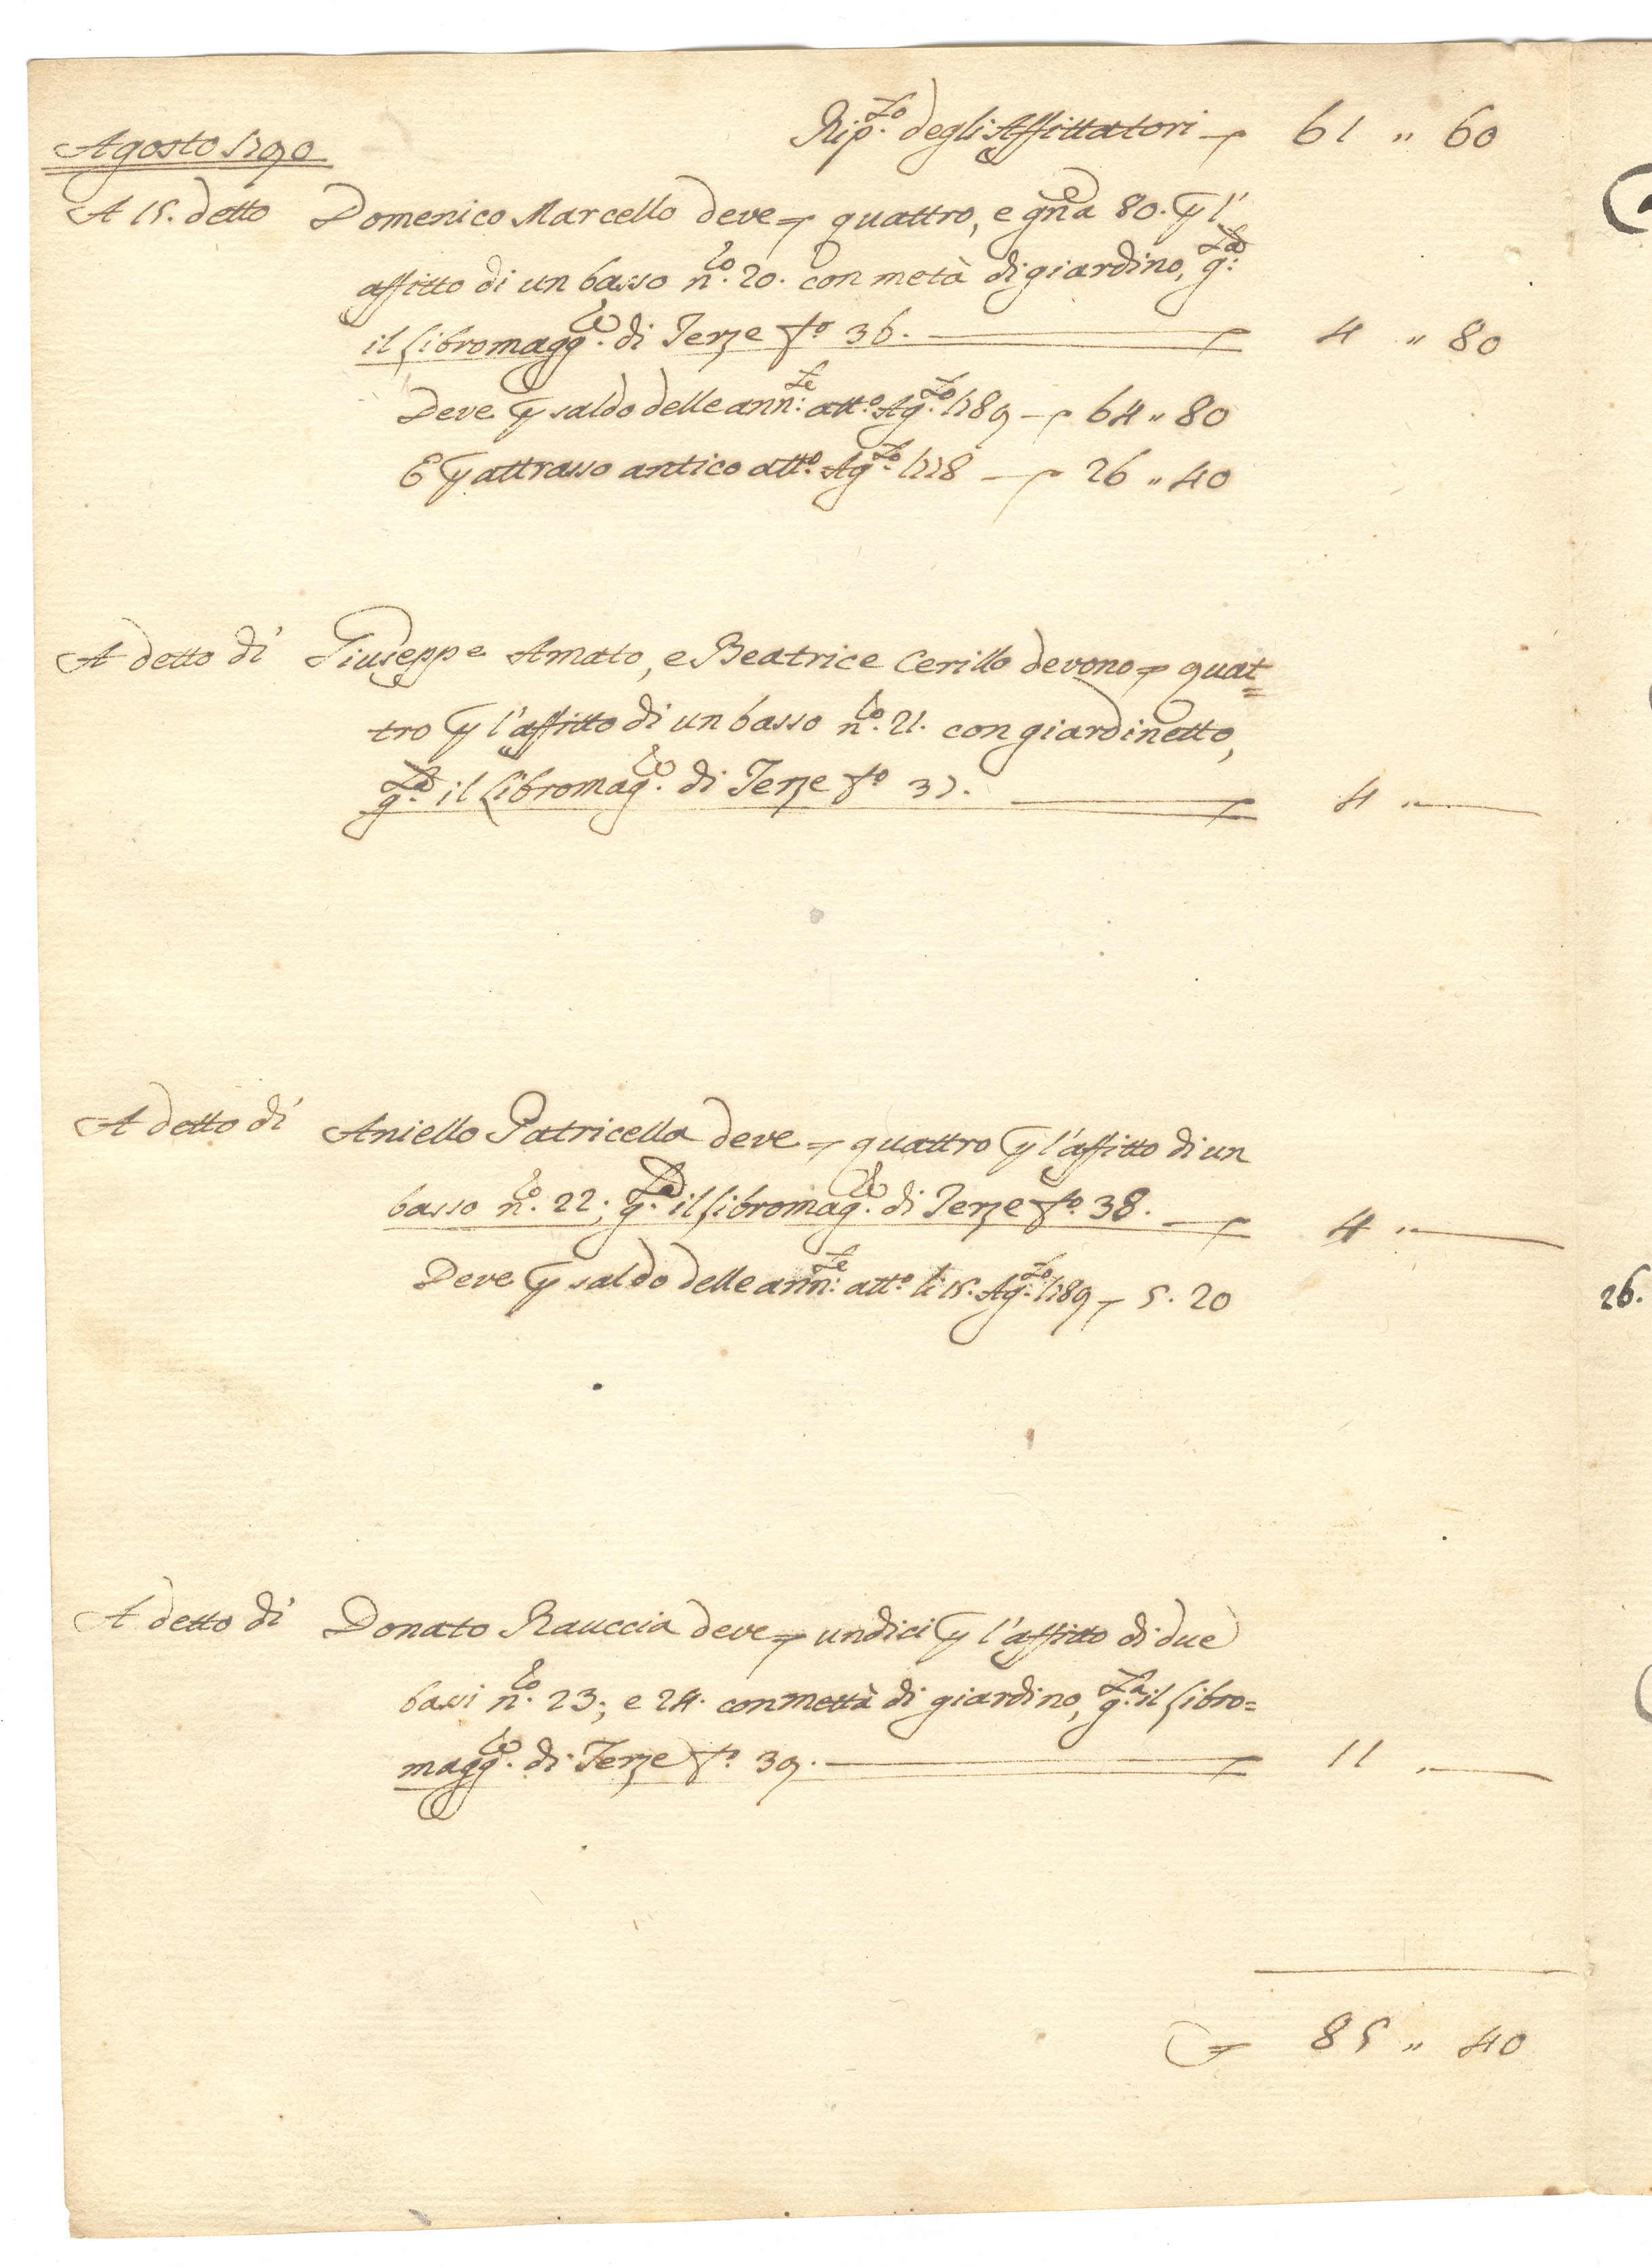 Rip.to degli Affittatori - 61 " 60
Agosto 1790
A 15. detto Domenico Marcello deve quattro, e gña 80. p l'
affitto di un basso n.ro 20. con metà di giardino, g.ta
il libro magg.re di Terze f.o 36. 4 " 80
Deve p saldo delle ann.te att.o Ag.to 1789 - 64 " 80
E p attrasso antico att.o Ag.to 1778 - 26 " 40
A detto dì Giuseppe Amato, e Beatrice Cerillo devono quat=
tro p l'affitto di un basso n.ro 21. con giardinetto,
g.ta il libro mag.re di Terze f.o 37. 4 "
A detto dì Aniello Patricella deve quattro p l'affitto di un
basso n.ro 22; g.ta il libro mag.re di Terze f.o 38. 4 "
Deve p saldo delle ann.te att.o li 15. Ag.to 1789 - 5. 20
26.
A detto dì Donato Rauccia deve undici p l'affitto di due
bassi n.ro 23; e 24. con mettà di giardino, g.ta il libro=
magg.re di Terze f.o 39. 11 "
85 " 40